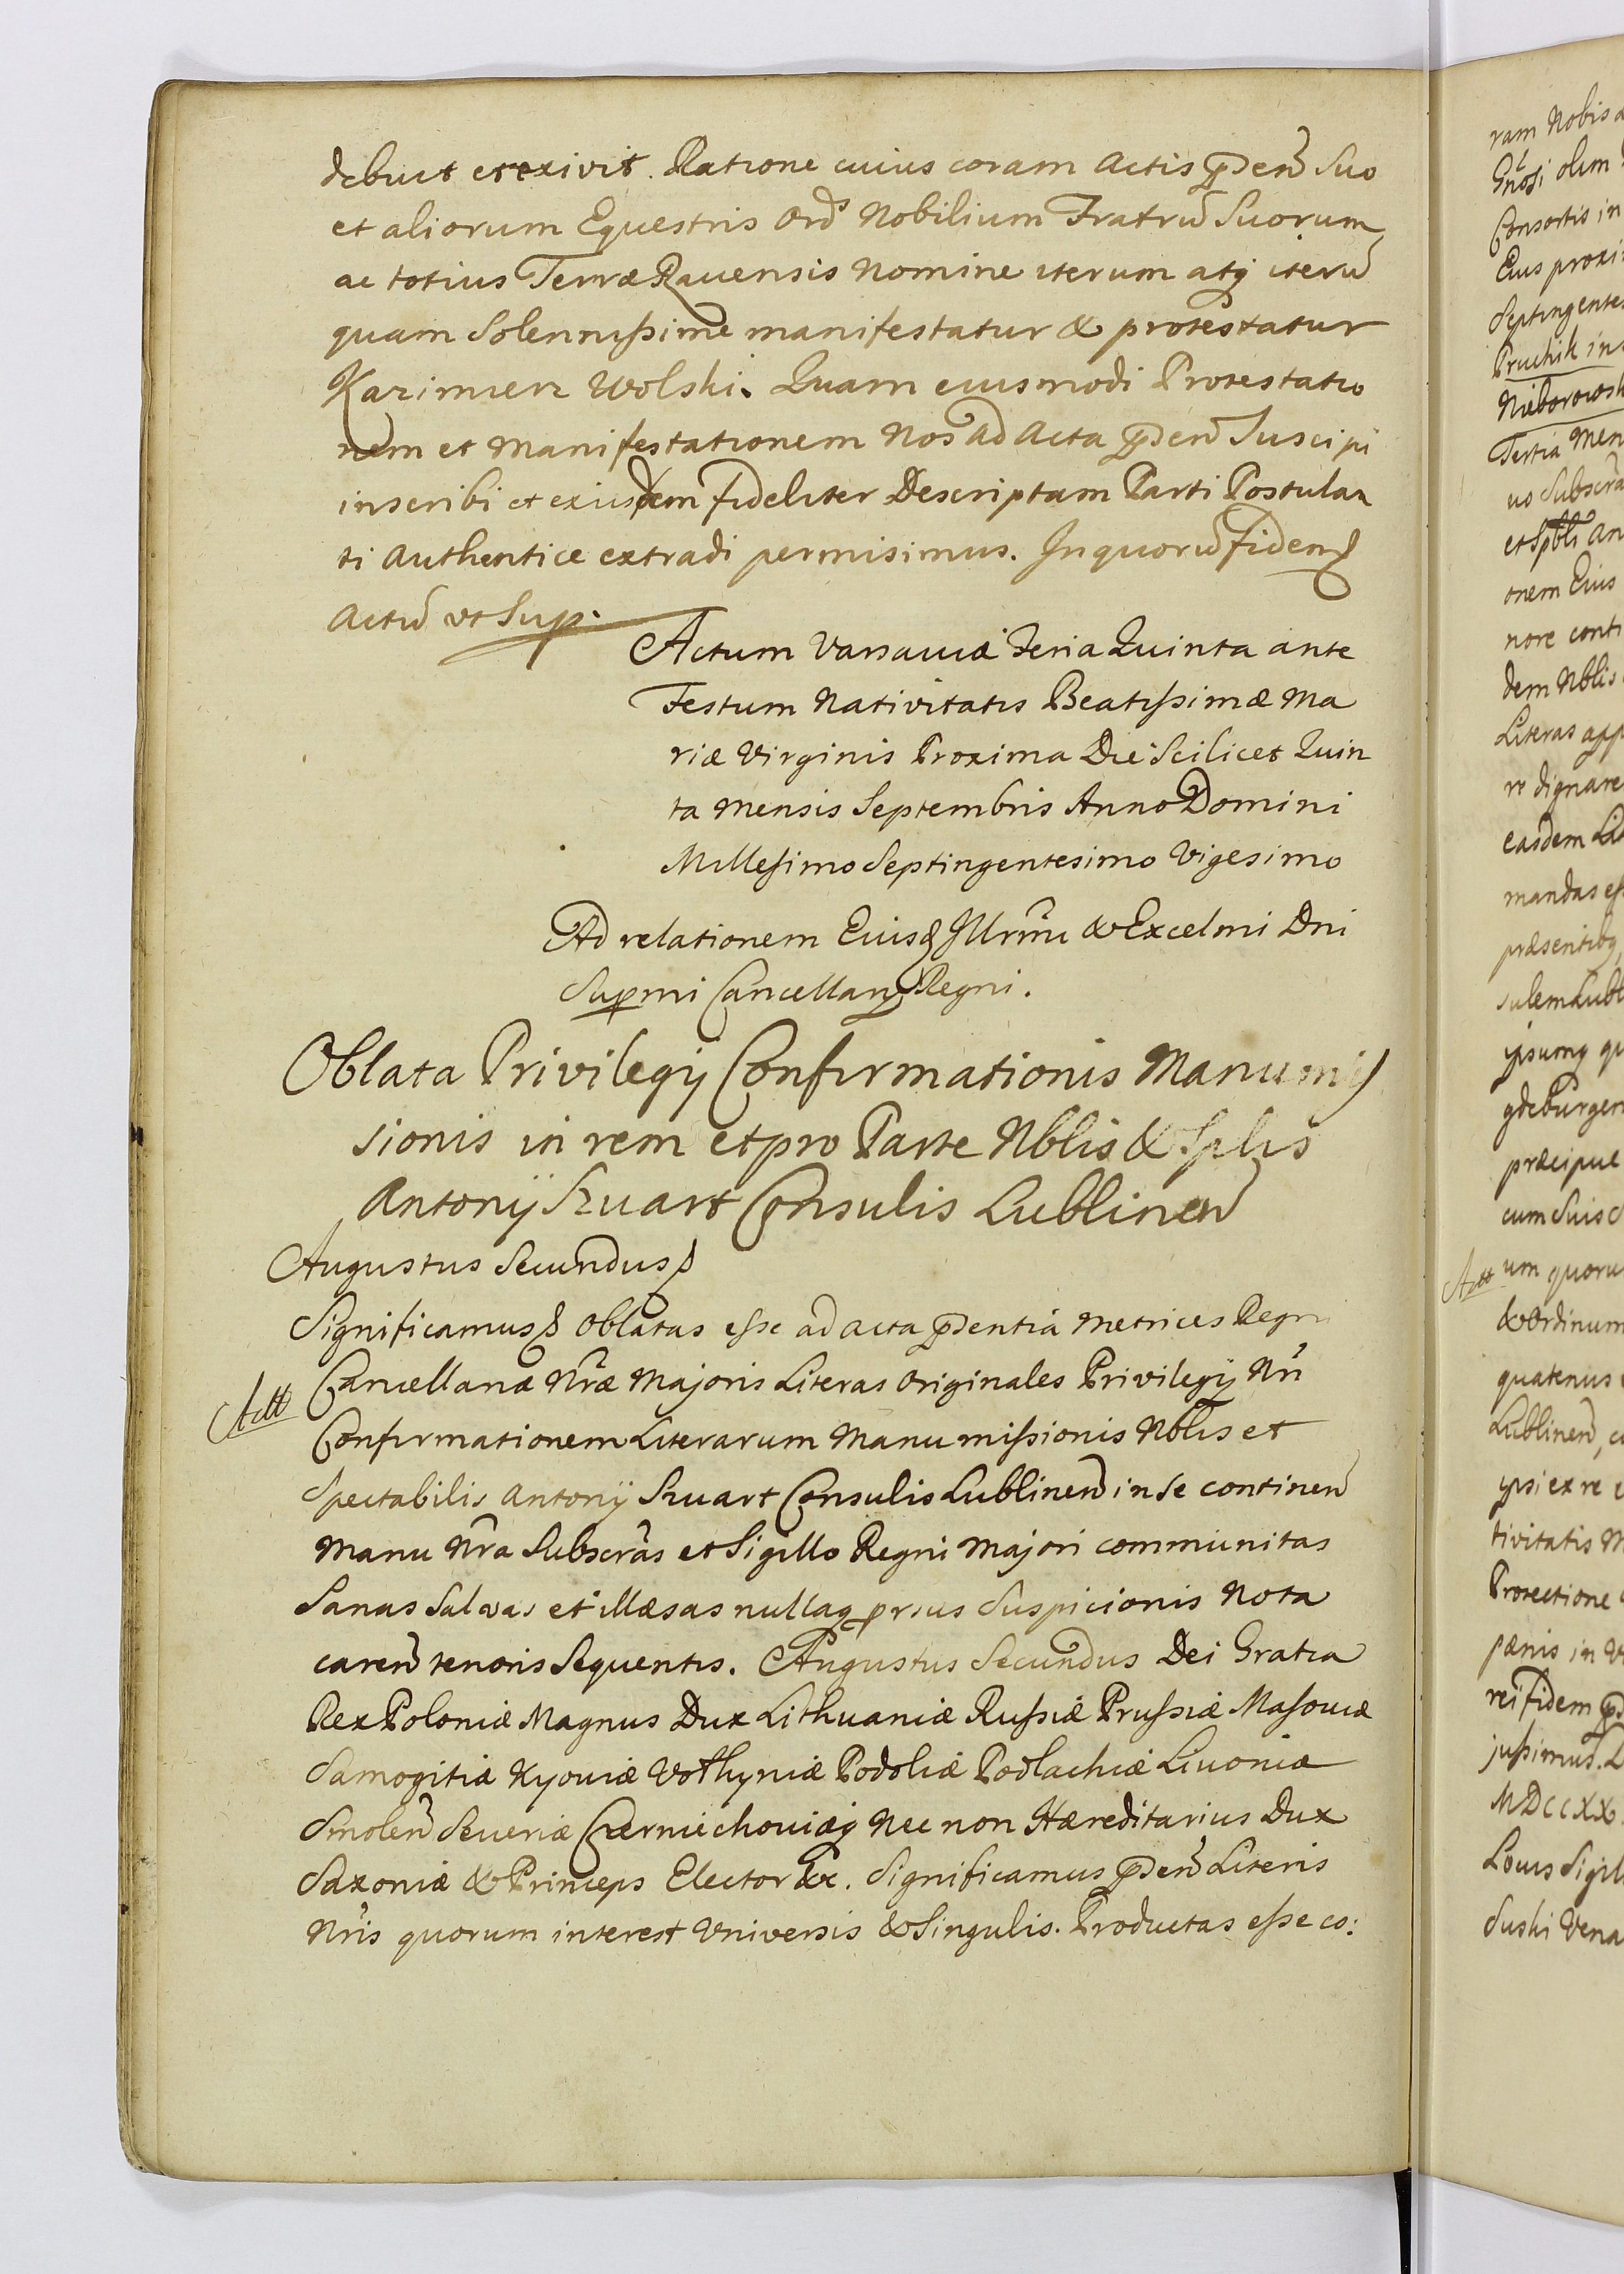 debuit et exivit. Ratione cuius coram Actis p̄den̄ Suo
et aliorum Equestris Ord̄s Nobilium Fratrū Suorum
ac totius Terræ Ravensis Nomine iterum atq̨ iterū
quam Solennissime manifestatur & protestatur
Kazimierz Wolski. Quam eiusmodi Protestatio
nem et Manifestationem Nos ad Acta p̄den̄ Suscipi
inscribi et exiisdem fideliter Descriptam Parti Postulan
ti Authentice extradi permisimus. In quorū fidem
Actū vt Sup.
Actum Varsaviæ Feria Quinta ante
Festum Nativitatis Beatissimæ Ma
riæ Virginis Proxima Die Scilicet Quin
ta Mensis Septembris Anno Domini
Millesimo Septingentesimo Vigesimo
Ad relationem Eiusd Illrm̄i & Excelmi Dni
Supmi Cancellarÿ Regni.
Oblata Privilegÿ Confirmationis Manumis
sionis in rem et pro Parte Nblis & Splis
Antonÿ Szuart Consulis Lublinen̄
Augustus Secundus
Significamus Oblatas esse ad acta p̄dentia Metrices Regni
Cancellariæ Nr̄æ Majoris Literas Originales Privilegÿ Nri
Confirmationem Literarum Manumissionis Nblis et
Spectabilis Antonÿ Szuart Consulis Lublinen̄ in se continen̄
Manu Nr̄a Subscr̄as et Sigillo Regni Majori communitas
Sanas Salvas et illæsas nullaq̨ prsus Suspicionis Nota
caren̄ tenoris Sequentis. Augustus Secundus Dei Gratia
Rex Poloniæ Magnus Dux Lithuaniæ Russiæ Prussiæ Masoviæ
Samogitiæ Kyoviæ Volhyniæ Podoliæ Podlachiæ Livoniæ
Smolen̄ Severiæ Czerniechoviæq̨ Nec non Hæreditarius Dux
Saxoniæ & Princeps Elector &c. Significamus p̄den̄ Literis
Nr̄is quorum interest Vniversis & Singulis. Productas esse co:
ram Nobis
olim
Consortis in
Eius proxi
Septingentes
Pruchik in
Nieborowsk
Tertia Men
us Subscra
onem Eius
nore conti
dem Nblis
Literas app
re dignare
easdem Li
mandas es
præsentibq̨
sulem Lubl
ipsumq̨ qu
gdeburgen
præcipue
cum Suis
um quoru
& Ordinum
quatenus
Lublinen̄, c
ipsi ex re
tivitatis M
Protectione
pænis in
rei fidem
jussimus. L
MDCCXX.
Locus Sigil
Suski Vena